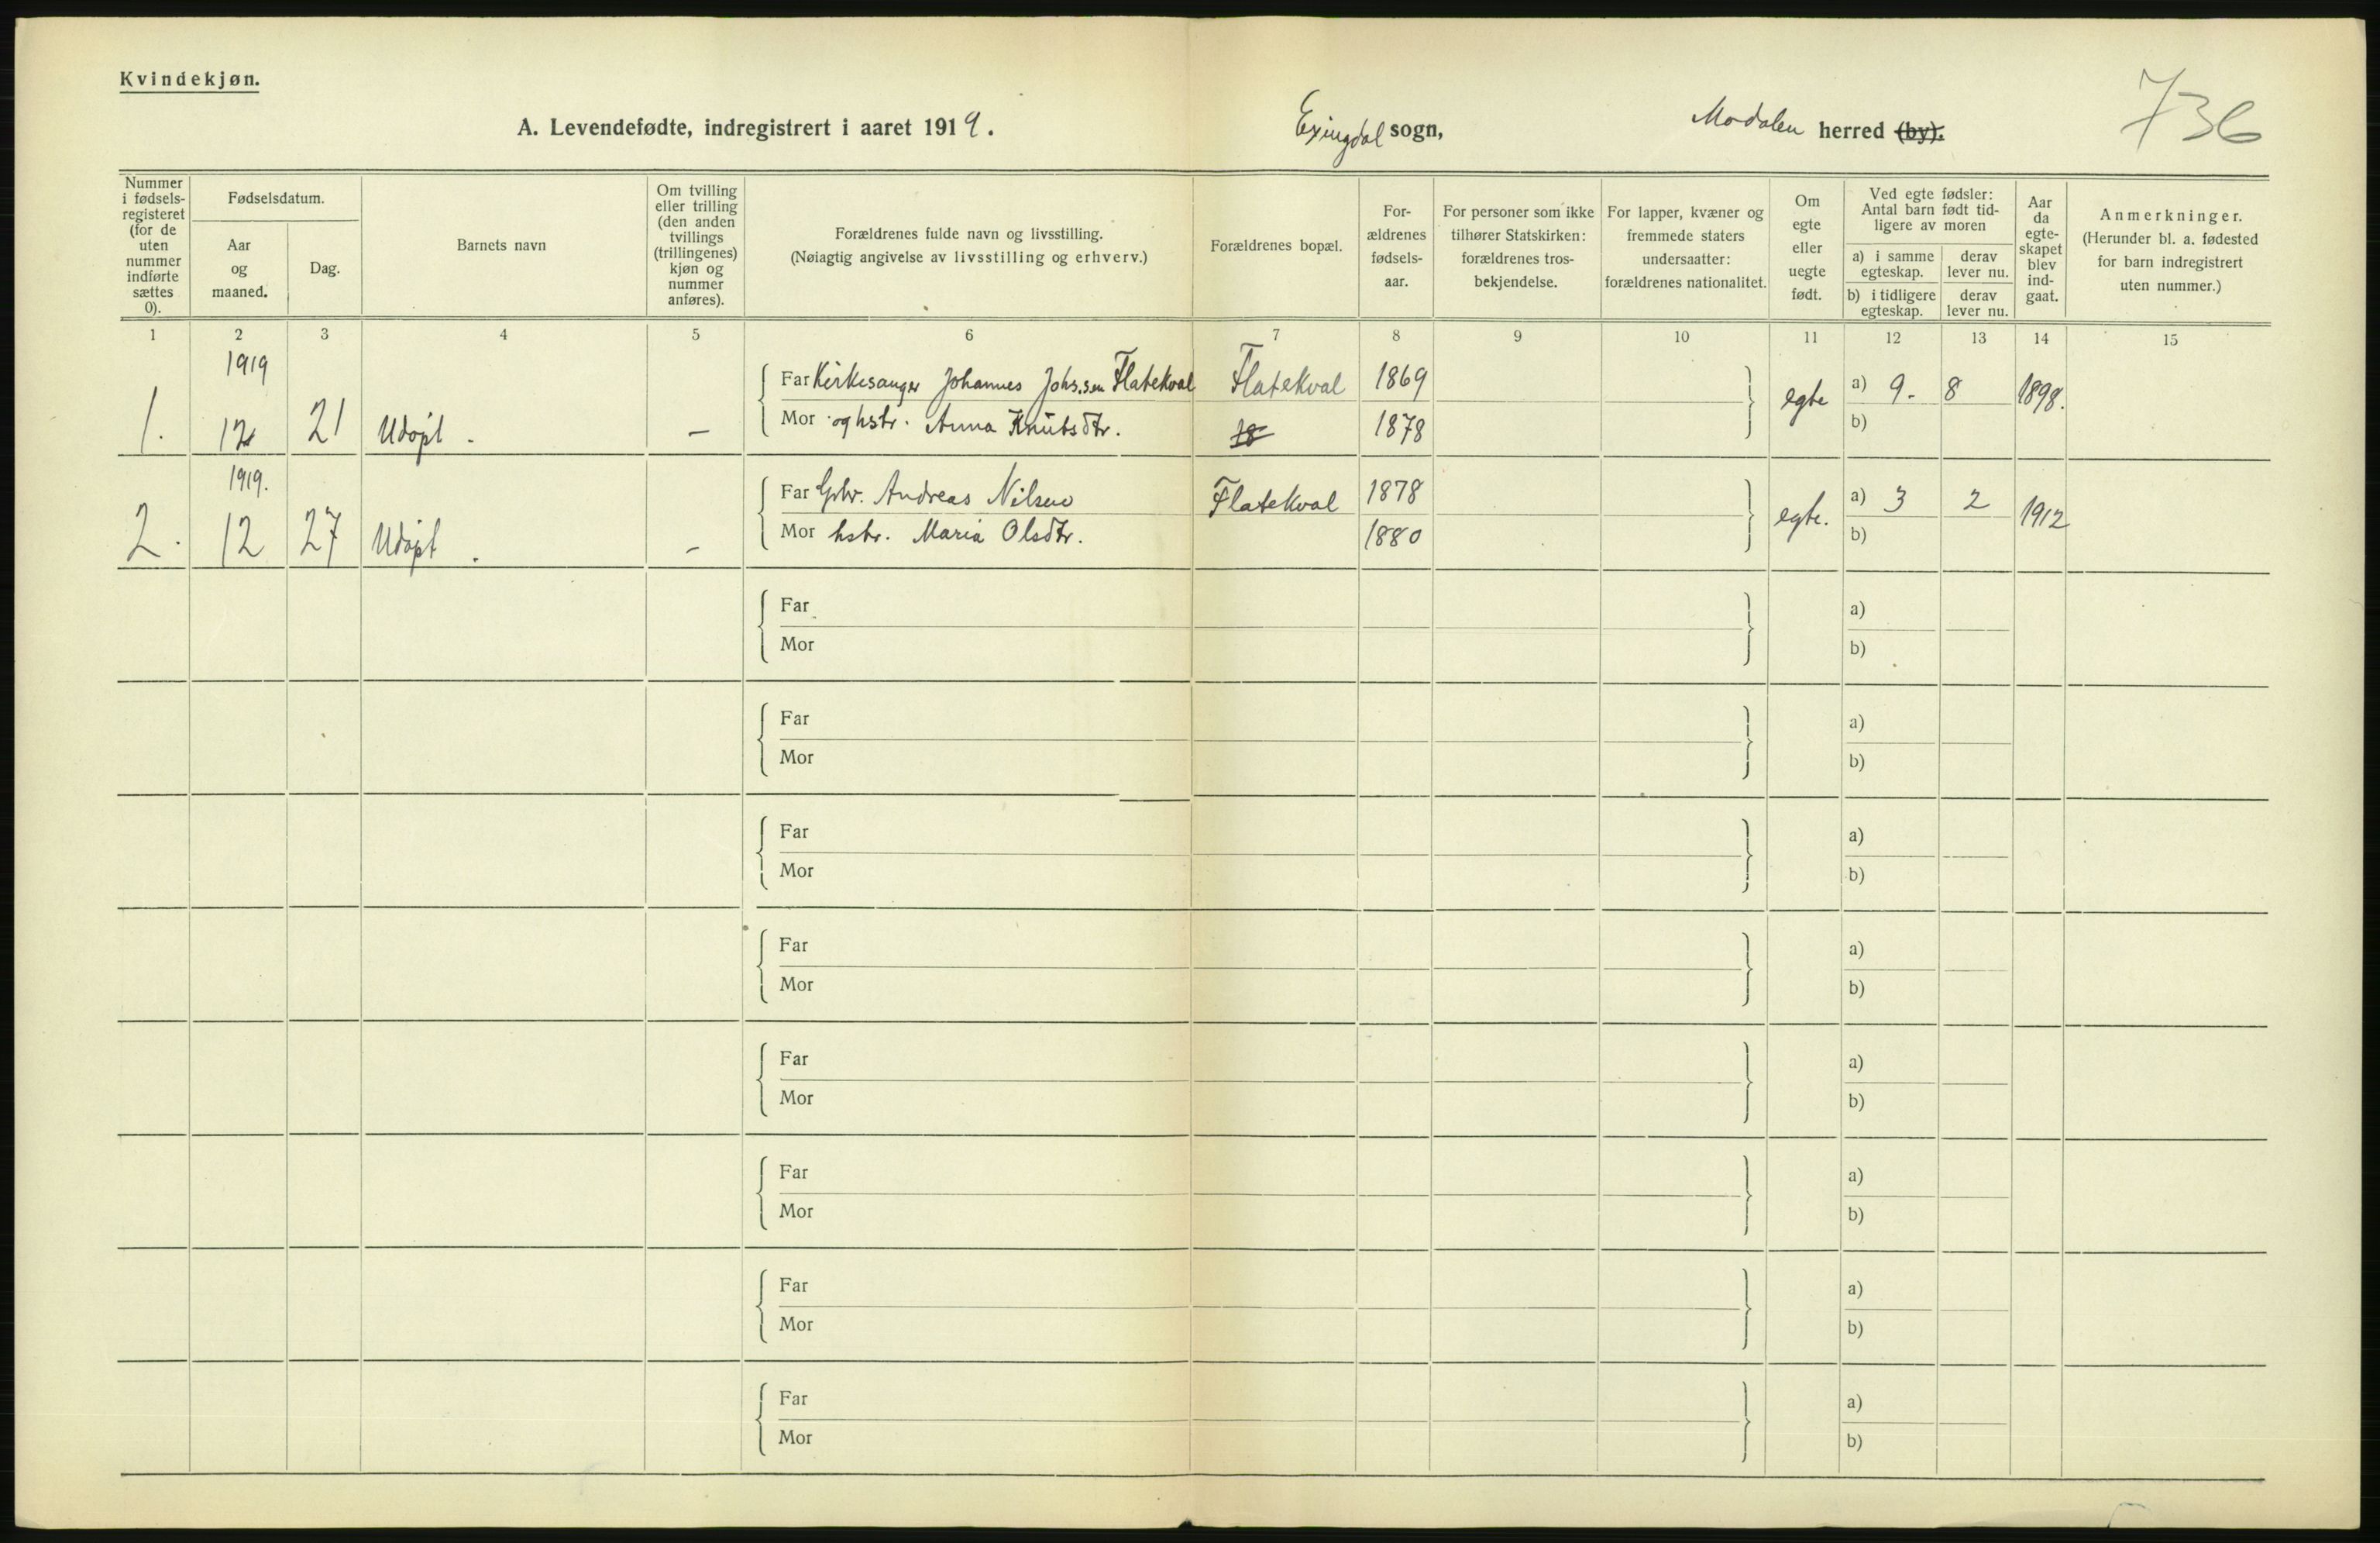 Kvindekjøn.
736
A. Levendefødte, indregistrert i aaret 1919. Exingdal sogn, Modalen herred (by).
Nummer i fødsels-registeret (for de uten nummer indførte sættes 0).
Fødselsdatum.
Aar og maaned.
Dag.
Barnets navn
Om tvilling eller trilling (den anden tvillings (trillingenes) kjøn og nummer anføres).
Forældrenes fulde navn og livsstilling.
(Nøiagtig angivelse av livsstilling og erhverv.)
Forældrenes bopæl.
For-ældrenes fødsels-aar.
For personer som ikke tilhører Statskirken: forældrenes tros-bekjendelse.
For lapper, kvæner og fremmede staters undersaatter: forældrenes nationalitet.
Om egte eller uegte født.
Ved egte fødsler: Antal barn født tid-ligere av moren
a) i samme egteskap. derav lever nu.
b) i tidligere egteskap. derav lever nu.
Aar da egte-skapet blev ind-gaat.
Anmerkninger.
(Herunder bl. a. fødested for barn indregistrert uten nummer.)
1 2 3 4 5 6 7 8 9 10 11 12 13 14 15
1919
Far Kirkesanger Johannes Johs.sen Flatekval Flatekval 1869 a) 9. 8
1. 12 21 Udøpt. – Mor og hstr. Anna Knutsdtr. 1878 egte b) 1898.
1919.
Far Gbr. Andreas Nilsen Flatekval 1878 a) 3 2
2. 12 27 Udøpt. – Mor hstr. Maria Olsdtr. 1880 egte. b) 1912
Far a)
Mor b)
Far a)
Mor b)
Far a)
Mor b)
Far a)
Mor b)
Far a)
Mor b)
Far a)
Mor b)
Far a)
Mor b)
Far a)
Mor b)